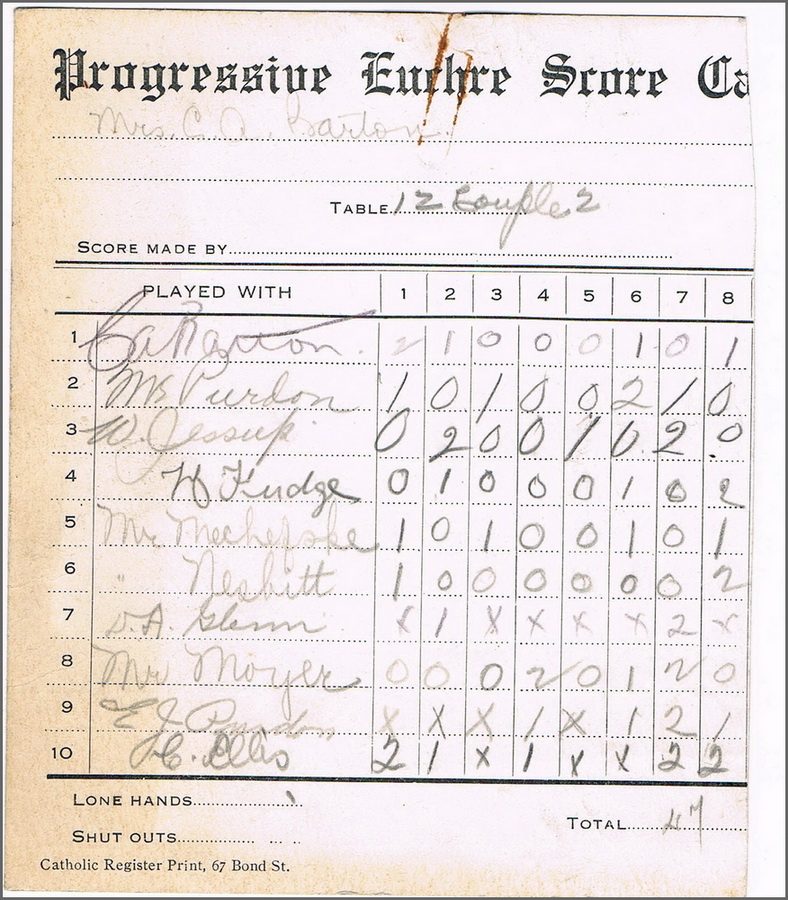 Progressive Euchre Score Ca
Mrs. C. A. Barton
TABLE 12 Couple 2
SCORE MADE BY
PLAYED WITH 1 2 3 4 5 6 7 8
1 Ca Barton. 2 1 0 0 0 1 0 1
2 Mr Purdon 1 0 1 0 0 2 1 0
3 W. Jessup 0 2 0 0 1 0 2 0
4 W Fudge 0 1 0 0 0 1 0 2
5 Mr Mechefske 1 0 1 0 0 1 0 1
6 " Nesbitt 1 0 0 0 0 0 0 2
7 D.A. Glenn x 1 x x x x 2 x
8 Mr Moyer 0 0 0 2 0 1 2 0
9 E J Purdon x x x 1 x 1 2 1
10 C. Ellis 2 1 x 1 x x 2 2
LONE HANDS
TOTAL 47
SHUT OUTS
Catholic Register Print, 67 Bond St.